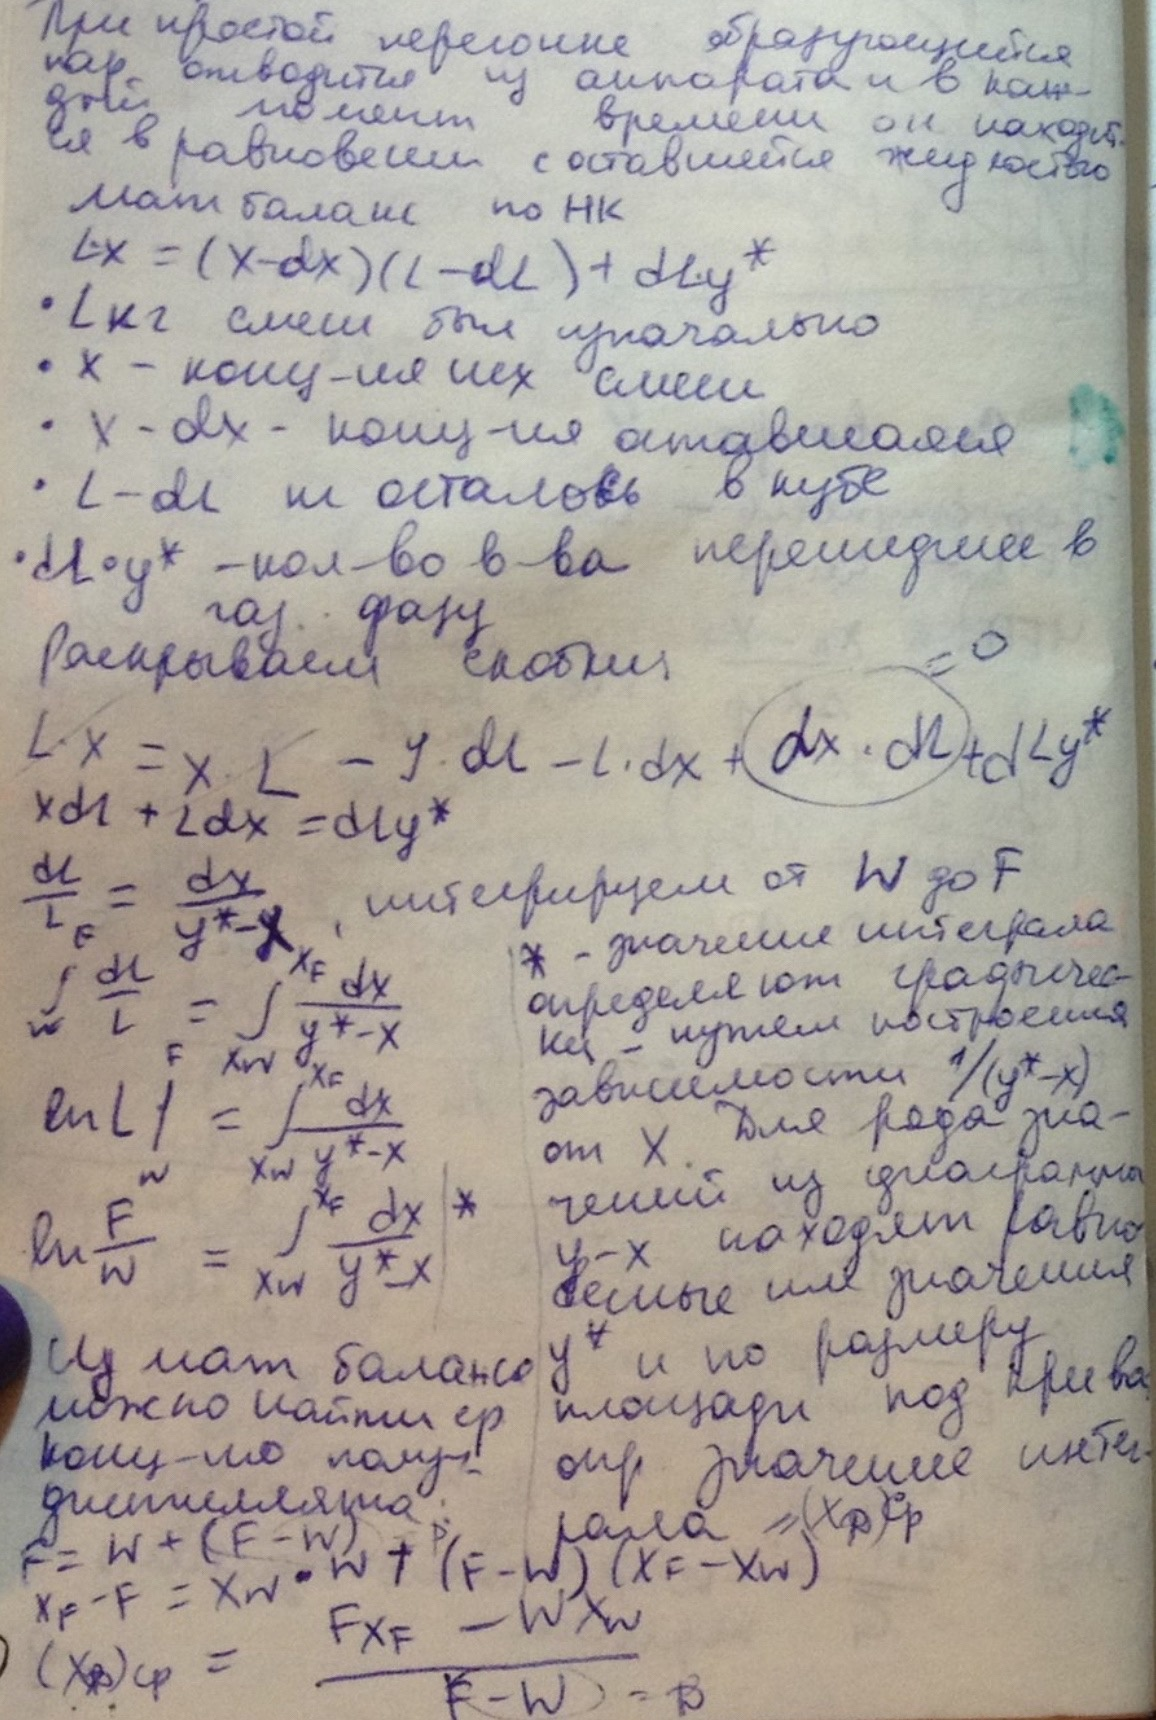 При простой перегонке образующийся
пар отводится из аппарата и в каж-
дый момент времени он находит-
ся в равновесии с оставшейся жидкостью
Мат баланс по НК
L·x = (x-dx)(L-dL) + dL·y*
• L кг смеси был изначально
• x - конц-ия исх смеси
• x - dx - конц-ия оставшаяся
• L - dL кг осталось в кубе
• dL•y* - кол-во в-ва перешедшее в
газ. фазу
Раскрываем скобки
= 0
L·x = x·L - x·dL - L·dx + dx·dL + dLy*
xdL + Ldx = dLy*
dL/L = dx/(y*-x), интегрируем от W до F
∫_W^F dL/L = ∫_{xW}^{xF} dx/(y*-x)
ln L |_W^F = ∫_{xW}^{xF} dx/(y*-x)
ln F/W = ∫_{xW}^{xF} dx/(y*-x) | *
* - значение интеграла
определяют графичес-
ки - путем построения
зависимости 1/(y*-x)
от X. Для ряда зна-
чений из диаграммы
y-x находят равно
весные им значения
y* и по размеру
площади под крива
опр значение интег-
рала
Из мат баланса
можно найти ср
конц-ию получ.
дистиллята:
F = W + (F-W)
= (xD)ср
xF - F = xW • W + (F-W) (xF - xW)
(xD)ср = (FxF - WxW)/(F-W) = D